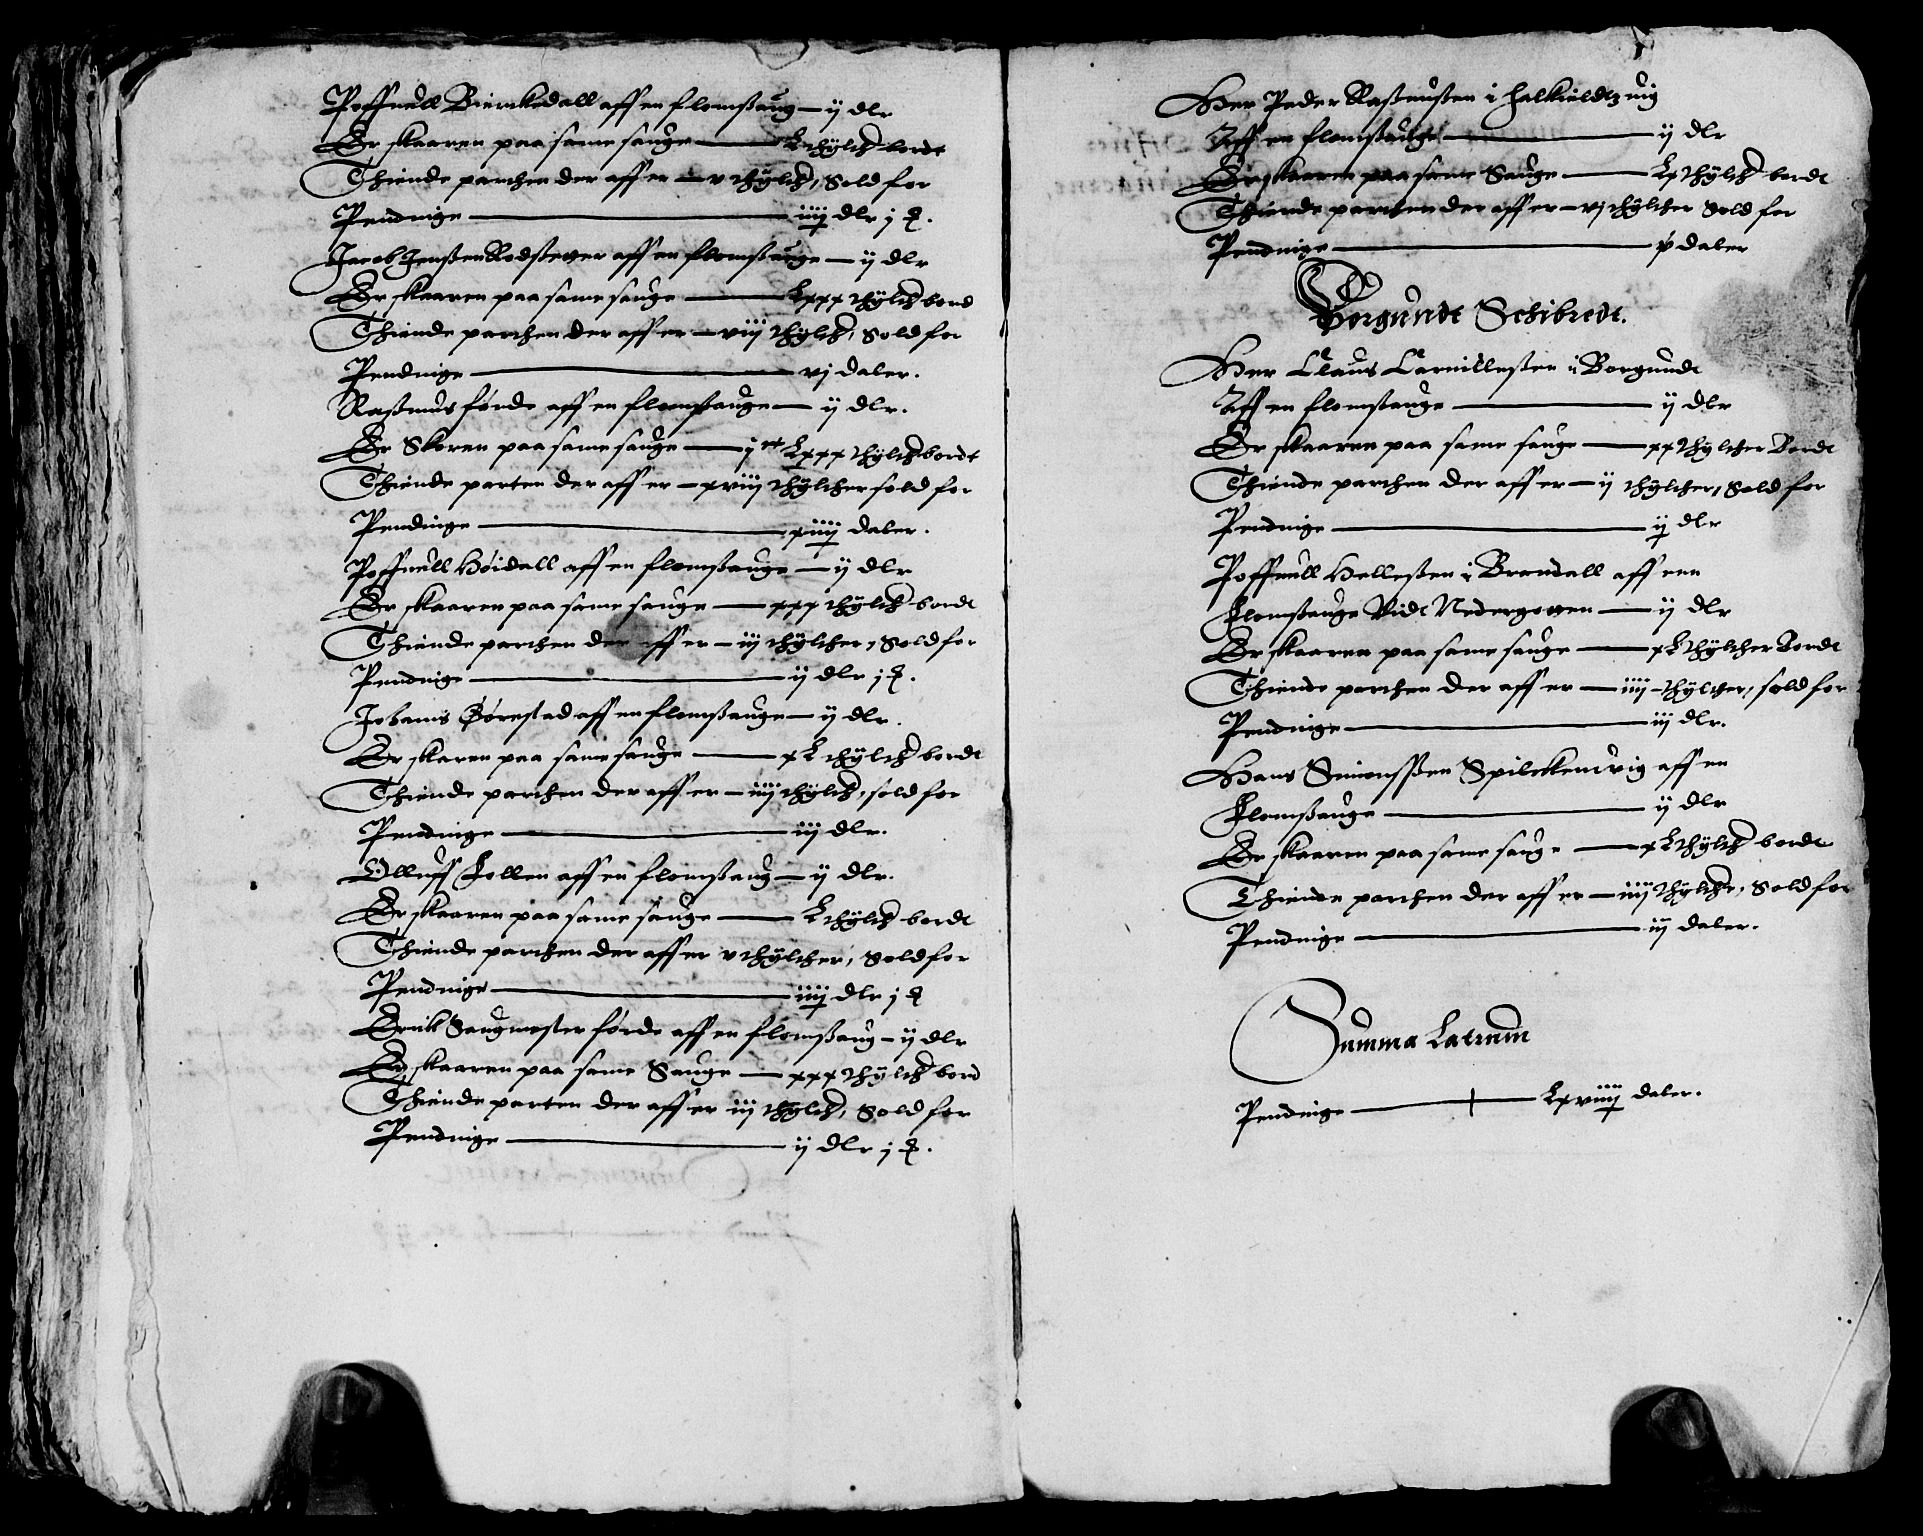 Poffuell Bierckedall aff en flomsaug — ij dlr
Er skaaren paa same sauge — L thÿlth bordt
Thiende parthen der aff er — v thÿlth, Sold for
Pendinge — iiij dlr j ʒ.
Jacob Jenßen Rodsetter aff en flomsauge — ij dlr
Er skaaren paa same sauge — Lxxx thÿlth bord
Thiende parthen der aff er — viij thÿlth, Sold for
Pendinge — vj daler.
Raßmus förde aff en flomsauge — ij dlr.
Er Skoren paa same sauge — j ct Lxxx thÿlth bordt
Thiende parten der aff er — xviij thÿlther sold for
Pendinge — xiiij daler.
Poffuell Höidall aff en flomsauge — ij dlr
Er skaaren paa same sauge — xxx thÿlth bordt
Thiende parthen der aff er — iij thÿlther, Sold for
Pendinge — ij dlr j ʒ.
Johanis Börestad aff en flomsauge — ij dlr.
Er skaren paa same sauge — xL thÿlth bordt
Thiende parthen der aff er — iiij thÿlth, sold for
Pendinge — iij dlr.
Olluff Follen aff en flomsaug — ij dlr.
Er skaaren paa same sauge — L thÿlth bordt
Thiende parthen der aff er v thÿlther, Sold for
Pendinge — iiij dlr j ʒ
Erik Saugmester förde aff en flomsaug — ij dlr
Er skaaren paa same Sauge — xxx thÿlth bord
Thiende parten der aff er iij thÿlth, Sold for
Pendinge — ij dlr j ʒ.
Her Peder Raßmußen i halkieldz uig
Aff en flomsauge — ij dlr
Er skaaren paa same Sauge — Lx thÿlth bordt
Thiende parthen der aff er — vj thÿlther Sold for
Pendinge — v daler
Borgundt Schibredt.
Her Claus Carnilleßen i Borgundt
Aff en flomsauge — ij dlr
Er skaaren paa same sauge — xx thÿlther Bordt
Thiende parthen der aff er — ij thÿlther, Sold for
Pendinge — ij dlr
Poffuell Helleßen i Brandall aff een
Flomsauge Vidt Nedergotten — ij dlr
Er skaaren paa same sauge — xL thÿlther Bordt
Thiende parthen der aff er — iiij thÿlther, sold for
Pendinge — iij dlr.
Hans Simensßen Spilckenvig aff en
Flomsauge — ij dlr
Er skaaren paa same sauge — xL thÿlth bordt
Thiende parthen der aff er — iiij thÿlthr, Sold for
Pendinge — iij daler.
Summa Laterum
Pendinge — Lxviiij daler.